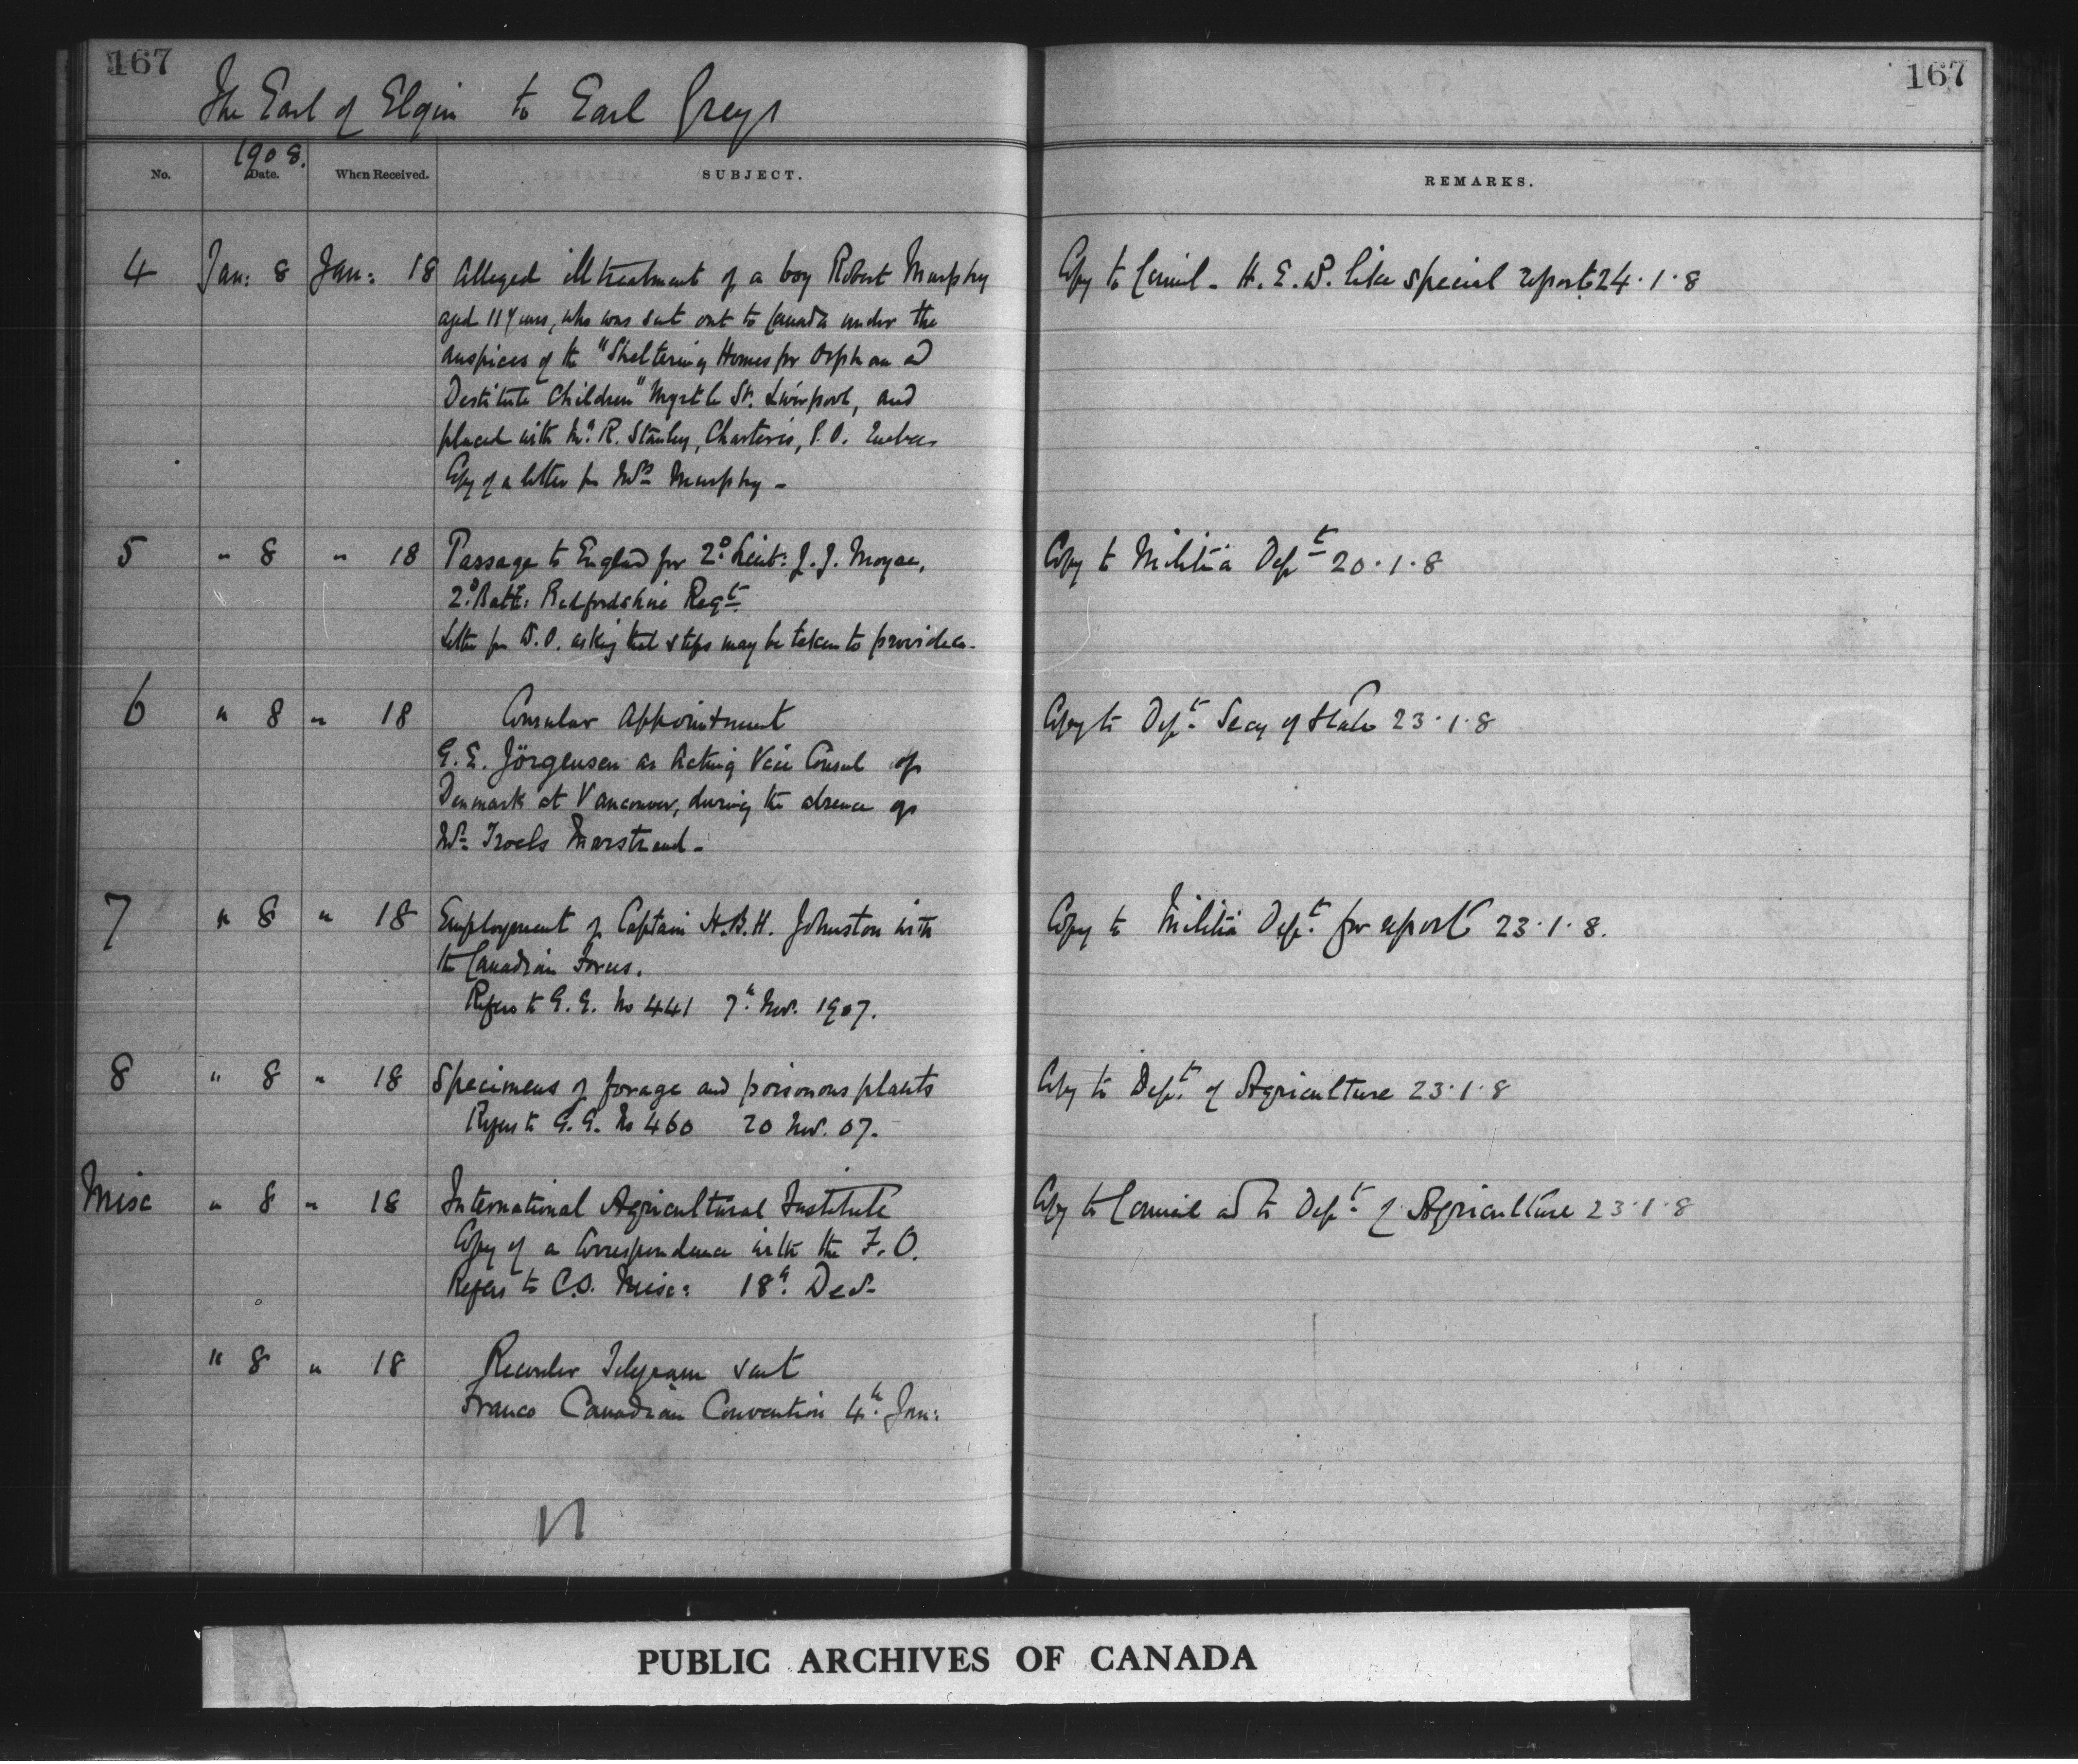 167
167
The Earl of Elgin to Earl Grey
1908.
No. Date. When Received. SUBJECT. REMARKS.
4 Jan: 8 Jan: 18 Alleged ill treatment of a boy Robert Murphy Copy to Council - H. E. wd. like special report 24.1.8
aged 11 years, who was sent out to Canada under the
auspices of the "Sheltering Homes for Orphan and
Destitute Children" Myrtle St. Liverpool, and
placed with Mr. R. Stanley, Charteris, P.O. Quebec
Copy of a letter fm Mrs Murphy -
5 " 8 " 18 Passage to England for 2d Lieut: J. J. Moyse, Copy to Militia Dept 20.1.8
2d Batt: Bedfordshire Regt.
Letter fm W.O. asking that steps may be taken to provide
6 " 8 " 18 Consular Appointment Copy to Dept. Secy of State 23.1.8
G. E. Jörgensen as Acting Vice Consul of
Denmark at Vancouver, during the absence of
Mr. Troels Marstrand -
7 " 8 " 18 Employment of Captain H.B.H. Johnston with Copy to Militia Dept. for report 23.1.8.
the Canadian Forces.
Refers to G. G. No 441 7th Nov. 1907.
8 " 8 " 18 Specimens of forage and poisonous plants Copy to Dept. of Agriculture 23.1.8
Refers to G. G. No 460 20 Nov. 07.
Misc " 8 " 18 International Agricultural Institute Copy to Council and to Dept. of Agriculture 23.1.8
Copy of a Correspondence with the F.O.
Refers to C.O. Misc: 18th Decr
" 8 " 18 Recorder Telegram sent
Franco Canadian Convention 4th Jan:
PUBLIC ARCHIVES OF CANADA